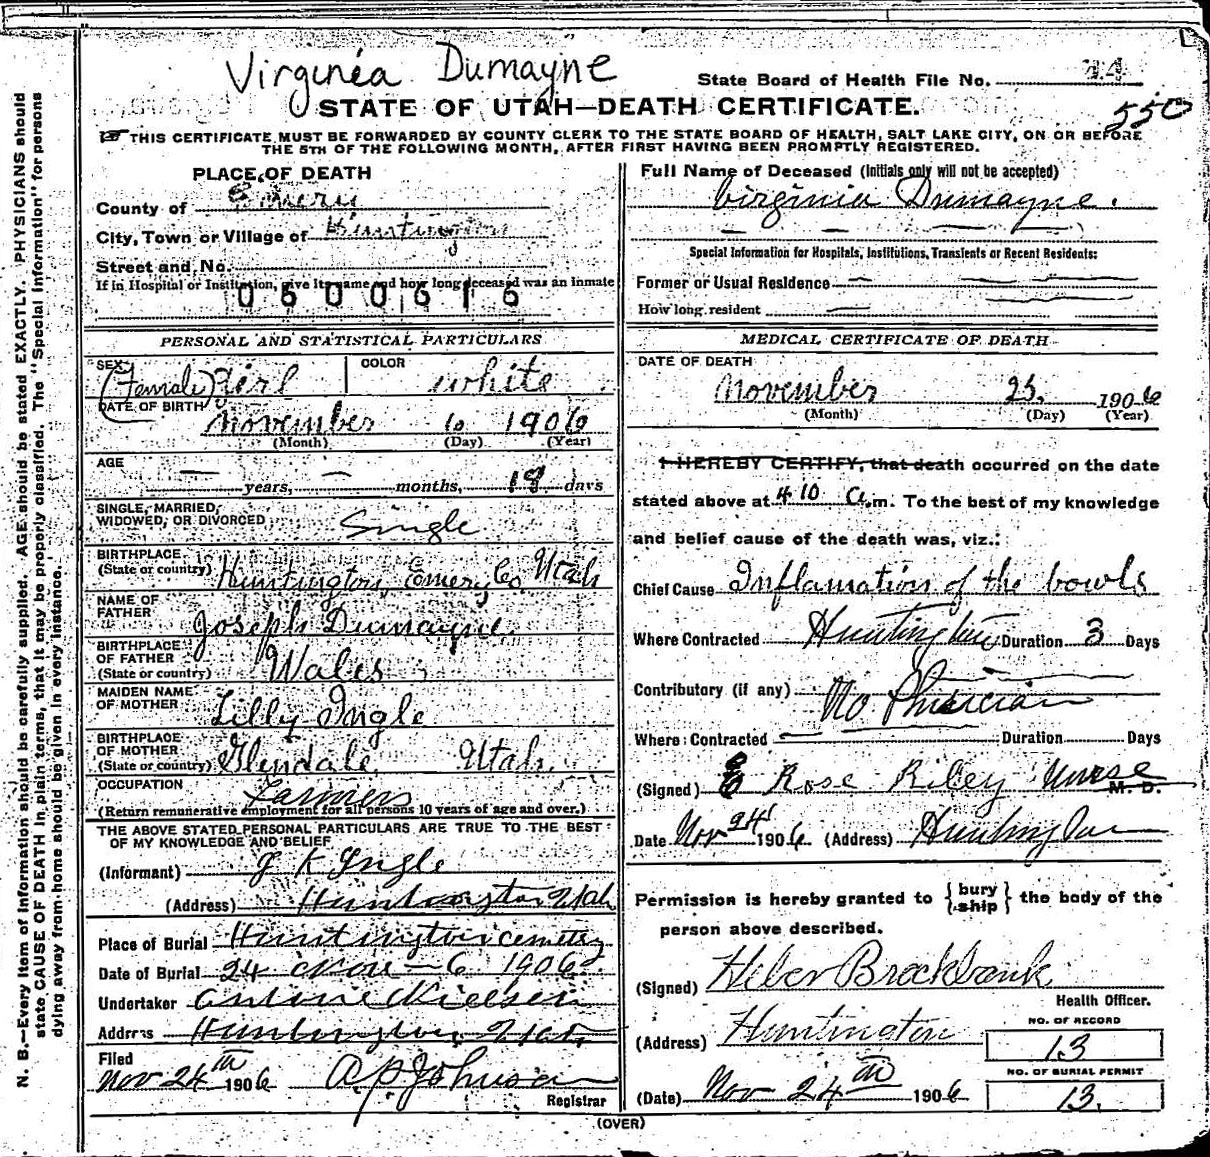 Virginia Dumayne
State Board of Health File No. 44
550
STATE OF UTAH—DEATH CERTIFICATE.
THIS CERTIFICATE MUST BE FORWARDED BY COUNTY CLERK TO THE STATE BOARD OF HEALTH, SALT LAKE CITY, ON OR BEFORE
THE 5TH OF THE FOLLOWING MONTH, AFTER FIRST HAVING BEEN PROMPTLY REGISTERED.
N. B.—Every item of information should be carefully supplied. AGE should be stated EXACTLY. PHYSICIANS should
state CAUSE OF DEATH in plain terms, that it may be properly classified. The "Special Information" for persons
dying away from home should be given in every instance.
PLACE OF DEATH
County of Emery
City, Town or Village of Huntington
Street and No.
If in Hospital or Institution, give its name and how long deceased was an inmate
0600616
PERSONAL AND STATISTICAL PARTICULARS
SEX (Female) Girl COLOR white
DATE OF BIRTH
November 6 1906
(Month) (Day) (Year)
AGE
— years, — months, 18 days
SINGLE, MARRIED,
WIDOWED, OR DIVORCED Single
BIRTHPLACE
(State or country) Huntington, Emery Co, Utah
NAME OF
FATHER Joseph Dumayne
BIRTHPLACE
OF FATHER
(State or country) Wales
MAIDEN NAME
OF MOTHER Lilly Ingle
BIRTHPLACE
OF MOTHER
(State or country) Glendale Utah
OCCUPATION Farmer
(Return remunerative employment for all persons 10 years of age and over.)
THE ABOVE STATED PERSONAL PARTICULARS ARE TRUE TO THE BEST
OF MY KNOWLEDGE AND BELIEF
(Informant) J K Ingle
(Address) Huntington Utah
Place of Burial Huntington cemetery
Date of Burial 24 Nov — 6 1906
Undertaker Antone Nielsen
Address Huntington Utah
Filed
Nov 24th 1906 A P Johnson
Registrar
Full Name of Deceased (Initials only will not be accepted)
Virginia Dumayne.
Special Information for Hospitals, Institutions, Transients or Recent Residents:
Former or Usual Residence
How long resident
MEDICAL CERTIFICATE OF DEATH
DATE OF DEATH
November 23. 1906
(Month) (Day) (Year)
I HEREBY CERTIFY, that death occurred on the date
stated above at 4 10 a.m. To the best of my knowledge
and belief cause of the death was, viz.:
Chief Cause Inflamation of the bowls
Where Contracted Huntington Duration 3 Days
Contributory (if any) No Phisician
Where Contracted Duration Days
(Signed) E Rose Riley Nurse M. D.
Date Nov 24 1906 (Address) Huntington
Permission is hereby granted to { bury ship } the body of the
person above described.
(Signed) Heber Brockbank
Health Officer.
(Address) Huntington
NO. OF RECORD
13
(Date) Nov 24th 1906
NO. OF BURIAL PERMIT
13.
(OVER)